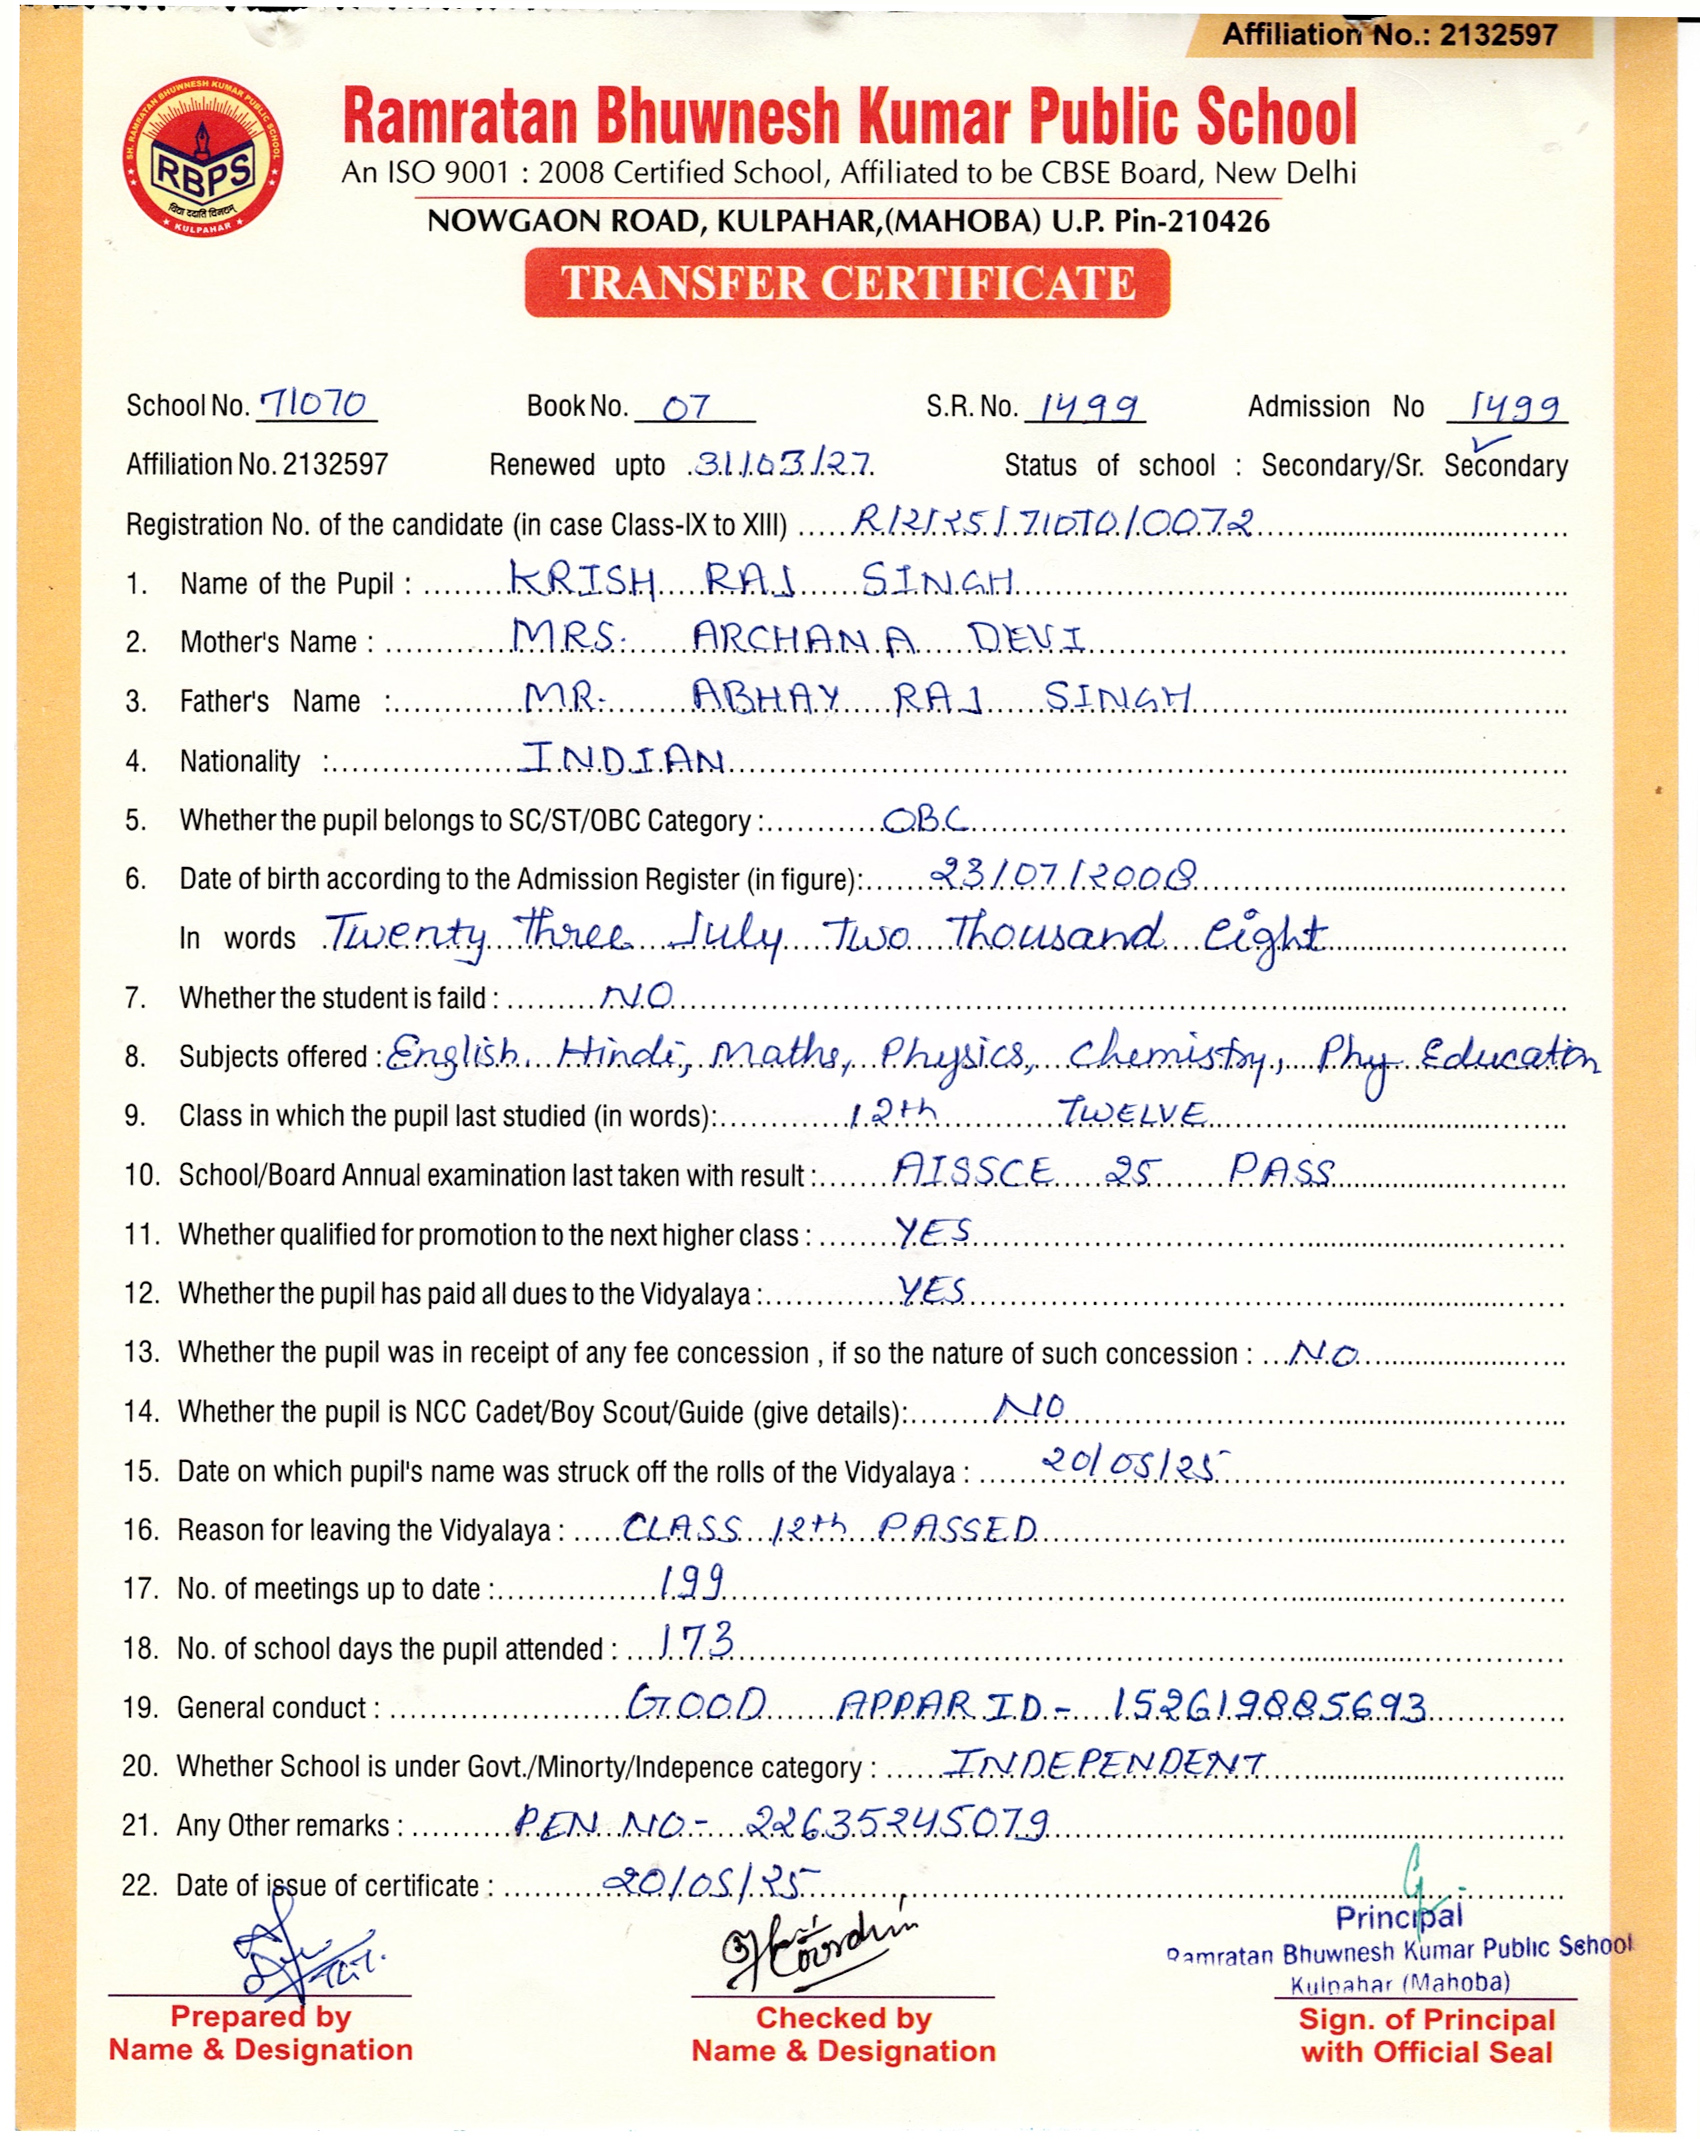 Affiliation No.: 2132597
SH. RAMRATAN BHUWNESH KUMAR PUBLIC SCHOOL
RBPS
विद्या ददाति विनयम्
KULPAHAR
Ramratan Bhuwnesh Kumar Public School
An ISO 9001 : 2008 Certified School, Affiliated to be CBSE Board, New Delhi
NOWGAON ROAD, KULPAHAR,(MAHOBA) U.P. Pin-210426
TRANSFER CERTIFICATE
School No. 71070 Book No. 07 S.R. No. 1499 Admission No 1499
Affiliation No. 2132597 Renewed upto 31/03/27 Status of school : Secondary/Sr. Secondary
Registration No. of the candidate (in case Class-IX to XIII) R/2/25/71070/0072
1. Name of the Pupil : KRISH RAJ SINGH
2. Mother's Name : MRS. ARCHANA DEVI
3. Father's Name : MR. ABHAY RAJ SINGH
4. Nationality : INDIAN
5. Whether the pupil belongs to SC/ST/OBC Category : OBC
6. Date of birth according to the Admission Register (in figure): 23/07/2008
In words Twenty Three July Two Thousand eight
7. Whether the student is faild : NO
8. Subjects offered : English, Hindi, Maths, Physics, Chemistry, Phy Education
9. Class in which the pupil last studied (in words): 12th TWELVE
10. School/Board Annual examination last taken with result : AISSCE 25 PASS
11. Whether qualified for promotion to the next higher class : YES
12. Whether the pupil has paid all dues to the Vidyalaya : YES
13. Whether the pupil was in receipt of any fee concession , if so the nature of such concession : NO
14. Whether the pupil is NCC Cadet/Boy Scout/Guide (give details): NO
15. Date on which pupil's name was struck off the rolls of the Vidyalaya : 20/05/25
16. Reason for leaving the Vidyalaya : CLASS 12th PASSED
17. No. of meetings up to date : 199
18. No. of school days the pupil attended : 173
19. General conduct : GOOD APPAR ID - 152619885693
20. Whether School is under Govt./Minorty/Indepence category : INDEPENDENT
21. Any Other remarks : PEN NO- 22635245079
22. Date of issue of certificate : 20/05/25
Principal
Ramratan Bhuwnesh Kumar Public School
Kulpahar (Mahoba)
Prepared by Checked by Sign. of Principal
Name & Designation Name & Designation with Official Seal